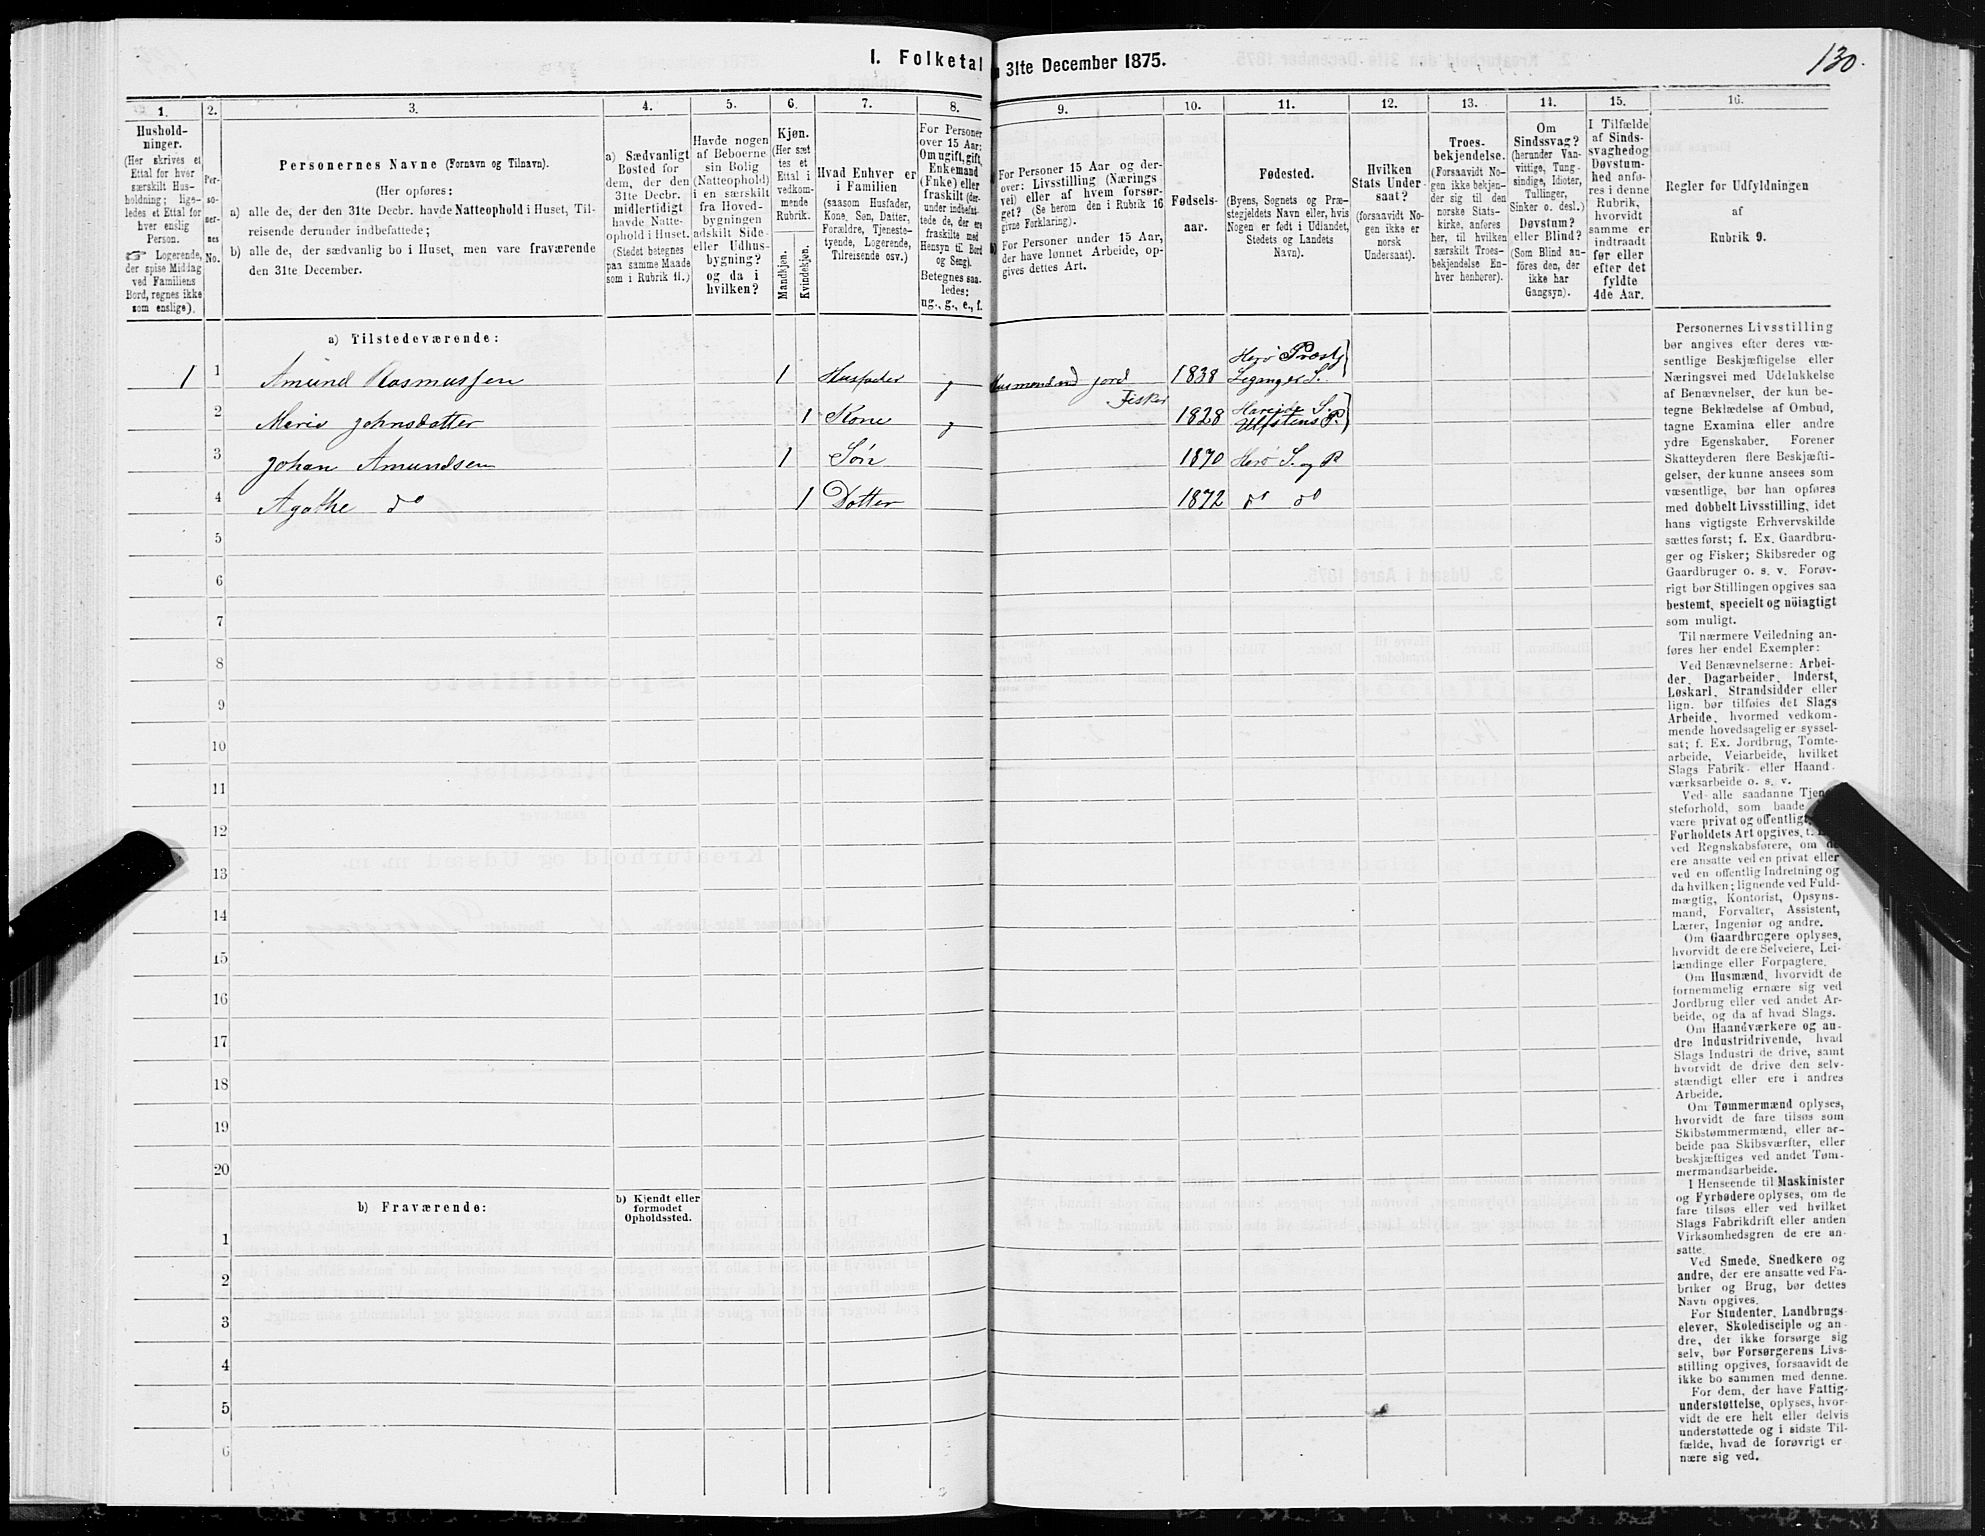 I. Folketal
31te December 1875.
130.
1.
2.
3.
4.
5.
6.
7.
8.
9.
10.
11.
12.
13.
14.
15.
16.
Hushold-
ninger.
(Her skrives et
Ettal for hver
særskilt Hus-
holdning; lige-
ledes et Ettal for
hver enslig
Person.
☞ Logerende,
der spise Middag
ved Familiens
Bord, regnes ikke
som enslige).
Per-
so-
ner-
nes
No.
Personernes Navne (Fornavn og Tilnavn).
(Her opføres:
a) alle de, der den 31te Decbr. havde Natteophold i Huset, Til-
reisende derunder indbefattede;
b) alle de, der sædvanlig bo i Huset, men vare fraværende
den 31te December.
a) Sædvanligt
Bosted for
dem, der den
31te Decbr.
midlertidigt
havde Natte-
ophold i Huset.
(Stedet betegnes
paa samme Maade
som i Rubrik 11.)
Havde nogen
af Beboerne
sin Bolig
(Natteophold)
i en særskilt
fra Hoved-
bygningen
adskilt Side-
eller Udhus-
bygning?
og da i
hvilken?
Kjøn.
(Her sæt-
tes et
Ettal i
vedkom-
mende
Rubrik.
Mandkjøn.
Kvindekjøn.
Hvad Enhver er
i Familien
(saasom Husfader,
Kone, Søn, Datter,
Forældre, Tjeneste-
tyende, Logerende,
Tilreisende osv.)
For Personer
over 15 Aar:
Om ugift, gift,
Enkemand
(Enke) eller
fraskilt (der-
under indbefat-
tede de, der ere
fraskilte med
Hensyn til Bord
og Seng).
Betegnes saa-
ledes:
ug., g., e., f.
For Personer 15 Aar og der-
over: Livsstilling (Nærings
vei) eller af hvem forsør-
get? (Se herom den i Rubrik 16
givne Forklaring).
For Personer under 15 Aar,
der have lønnet Arbeide, op-
gives dettes Art.
Fødsels-
aar.
Fødested.
(Byens, Sognets og Præ-
stegjeldets Navn eller, hvis
Nogen er født i Udlandet,
Stedets og Landets
Navn).
Hvilken
Stats Under-
saat?
(forsaavidt No-
gen ikke er
norsk
Undersaat).
Troes-
bekjendelse.
(Forsaavidt No-
gen ikke bekjen-
der sig til den
norske Stats-
kirke, anføres
her, til hvilken
særskilt Troes-
bekjendelse En-
hver henhører).
Om
Sindssvag?
(herunder Van-
vittige, Tung-
sindige, Idioter,
Tullinger,
Sinker o. desl.)
Døvstum?
eller Blind?
(Som Blind an-
føres den, der
ikke har
Gangsyn).
I Tilfælde
af Sinds-
svaghed og
Døvstum-
hed anfø-
res i denne
Rubrik,
hvorvidt
samme er
indtraadt
før eller
efter det
fyldte
4de Aar.
Regler for Udfyldningen
af
Rubrik 9.
a) Tilstedeværende:
1 1 Amund Rasmussen 1 Husfader g Husmand md jord Fisker 1838 Herø Præstg Leganger S.
2 Marie Johnsdatter 1 Kone g 1828 Hareide S. Ulfstens P.
3 Johan Amundsen 1 Søn 1870 Herø S. og P
4 Agathe do 1 Datter 1872 do do
5
6
7
8
9
10
11
12
13
14
15
16
17
18
19
20
b) Fraværende:
b) Kjendt eller
formodet
Opholdssted.
1
2
3
4
5
6
Personernes Livsstilling
bør angives efter deres væ-
sentlige Beskjæftigelse eller
Næringsvei med Udelukkelse
af Benævnelser, der kun be-
tegne Beklædelse af Ombud,
tagne Examina eller andre
ydre Egenskaber. Forener
Skatteyderen flere Beskjæfti-
gelser, der kunne ansees som
væsentlige, bør han opføres
med dobbelt Livsstilling, idet
hans vigtigste Erhvervskilde
sættes først; f. Ex. Gaardbru-
ger og Fisker; Skibsreder og
Gaardbruger o. s. v. Forøv-
rigt bør Stillingen opgives saa
bestemt, specielt og nöiagtigt
som muligt.
Til nærmere Veiledning an-
føres her endel Exempler:
Ved Benævnelserne: Arbei-
der, Dagarbeider, Inderst,
Løskarl, Strandsidder eller
lign. bør tilføies det Slags
Arbeide, hvormed vedkom-
mende hovedsagelig er syssel-
sat; f. Ex. Jordbrug, Tomte-
arbeide, Veiarbeide, hvilket
Slags Fabrik- eller Haand-
værksarbeide o. s. v.
Ved alle saadanne Tjene-
steforhold, som baade
være privat og offentligt,
Forholdets Art opgives, f.
ved Regnskabsførere, om de
ere ansatte ved en privat eller
ved en offentlig Indretning og
da hvilken; lignende ved Fuld-
mægtig, Kontorist, Opsyns-
mand, Forvalter, Assistent,
Lærer, Ingeniør og andre.
Om Gaardbrugere oplyses,
hvorvidt de ere Selveiere, Lei-
lændinge eller Forpagtere.
Om Husmænd, hvorvidt de
fornemmelig ernære sig ved
Jordbrug eller ved andet Ar-
beide, og da af hvad Slags.
Om Haandværkere og an-
dre Industridrivende, hvad
Slags Industri de drive, samt
hvorvidt de drive den selv-
stændigt eller ere i andres
Arbeide.
Om Tømmermænd oplyses,
hvorvidt de fare tilsøs som
Skibstømmermænd, eller ar-
beide paa Skibsværfter, eller
beskjæftiges ved andet Tøm-
mermandsarbeide.
I Henseende til Maskinister
og Fyrbødere oplyses, om de
fare tilsøs eller ved hvilket
Slags Fabrikdrift eller anden
Virksomhedsgren de ere an-
satte.
Ved Smede, Snedkere og
andre, der ere ansatte ved Fa-
briker og Brug, bør dettes
Navn opgives.
For Studenter, Landbrugs-
elever, Skoledisciple og an-
dre, der ikke forsørge sig
selv, bør Forsørgerens Livs-
stilling opgives, forsaavidt de
ikke bo sammen med denne.
For dem, der have Fattig-
understøttelse, oplyses, hvor-
vidt de ere helt eller delvis
understøttede og i sidste Til-
fælde, hvad de forøvrigt er
nære sig ved.